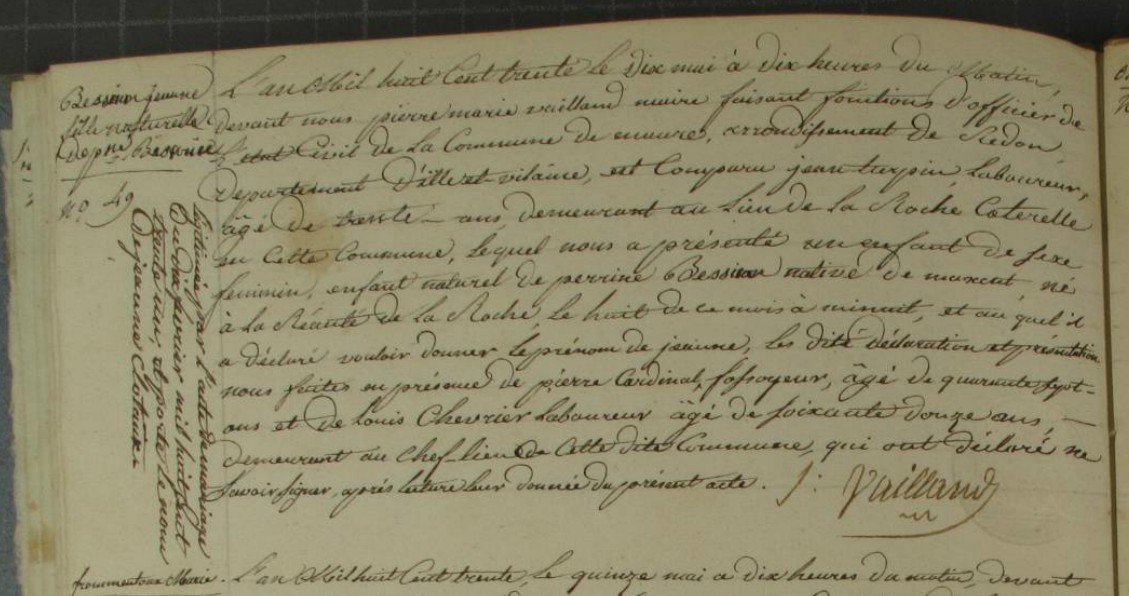 Bessiax jeanne
fille naturelle
De pne Bessiaux
No 49
Légitimée par l'acte de mariage
Du dix février mil huit cent
trente un, et porte le nom
De jeanne
L'an Mil huit Cent trente le dix mai à dix heures du Matin,
devant nous pierre marie vailland maire faisant fonctions d'officier de
L'état Civil de La Commune de maure, arrondissement de Redon,
Departement D'ille-et-vilaine, est Comparu jean turpin, Laboureur,
âgé de trente - ans, demeurant au Lieu de La Roche Coterelle
en Cette Commune, Lequel nous a présenté un enfant de sexe
feminin, enfant naturel de perrine Bessiax native de maxent, né
à La de La Roche, Le huit de ce mois à minuit, et au quel il
a déclaré vouloir donner le prénom de jeanne, les dite déclaration et présentation
nous faites en présence de pierre Cardinal, fossoyeur, âgé de quarante sept -
ans et De Louis Chevrier Laboureur âgé de soixante douze ans, -
demeurant au Chef-lieu de Cette dite Commune, qui ont déclaré ne
Savoir signer, après lecture leur donnée du présent acte. Vailland
frommentoux Marie. L'an Mil huit Cent trente, Le quinze mai à dix heures du matin, devant